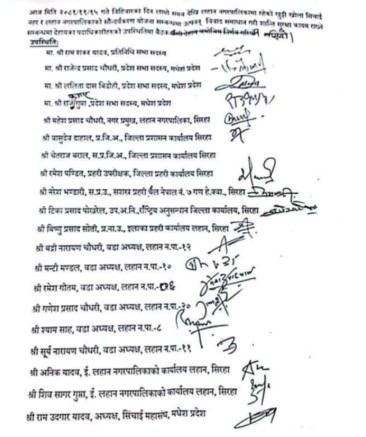 आज मिति २०८१/११/१५ गते विहिवारका दिन लामो समय देखि लहान नगरपालिकामा रहेको खुट्टी खोला सिंचाई
नहर र लहान नगरपालिकाको सौन्दर्यकरण योजना सम्बन्धमा उत्पन्न विवाद समाधान गरी शान्ति सुरक्षा कायम राख्ने
सम्बन्धमा देहायका पदाधिकारीहरुको उपस्थितिमा बैठक
उपस्थितिः
मा. श्री राम शंकर यादव, प्रतिनिधि सभा सदस्य
मा. श्री राजेन्द्र प्रसाद चौधरी, प्रदेश सभा सदस्य, मधेश प्रदेश
मा. श्री ललिता दास प्रदेश सभा सदस्य, मधेश प्रदेश
मा. श्री गुप्ता ,प्रदेश सभा सदस्य, मधेश प्रदेश
श्री महेश प्रसाद चौधरी, नगर प्रमुख, लहान नगरपालिका, सिरहा
श्री वासुदेव दाहाल, प्र.जि.अ., जिल्ला प्रशासन कार्यालय सिरहा
श्री खेलराज बराल, स.प्र.जि.अ., जिल्ला प्रशासन कार्यालय सिरहा
श्री रमेश पण्डित, प्रहरी उपरीक्षक, जिल्ला प्रहरी कार्यालय सिरहा
श्री नरेश भण्डारी, स.प्र.उ., सशस्त्र प्रहरी बल नेपाल नं. ७ गण हे.क्वा., सिरहा
श्री टिका प्रसाद पोखरेल, उप.अ.नि.,राष्ट्रिय अनुसन्धान जिल्ला कार्यालय, सिरहा
श्री विष्णु प्रसाद सोती, प्र.ना.उ., इलाका प्रहरी कार्यालय लहान, सिरहा
श्री बद्री नारायण चौधरी, वडा अध्यक्ष, लहान न.पा.-१२
श्री मन्टी मण्डल, वडा अध्यक्ष, लहान न.पा.-१०
श्री रमेश गौतम, वडा अध्यक्ष, लहान न.पा.-
श्री गणेश प्रसाद चौधरी, वडा अध्यक्ष, लहान न.पा.-२०
श्री श्याम साह, वडा अध्यक्ष, लहान न.पा.-८
श्री सूर्य नारायण चौधरी, वडा अध्यक्ष, लहान न.पा.-११
श्री अनिक यादव, ई. लहान नगरपालिकाको कार्यालय लहान, सिरहा
श्री शिव सागर गुप्ता, ई. लहान नगरपालिकाको कार्यालय लहान, सिरहा
श्री राम उदगार यादव, अध्यक्ष, सिंचाई महासंघ, मधेश प्रदेश